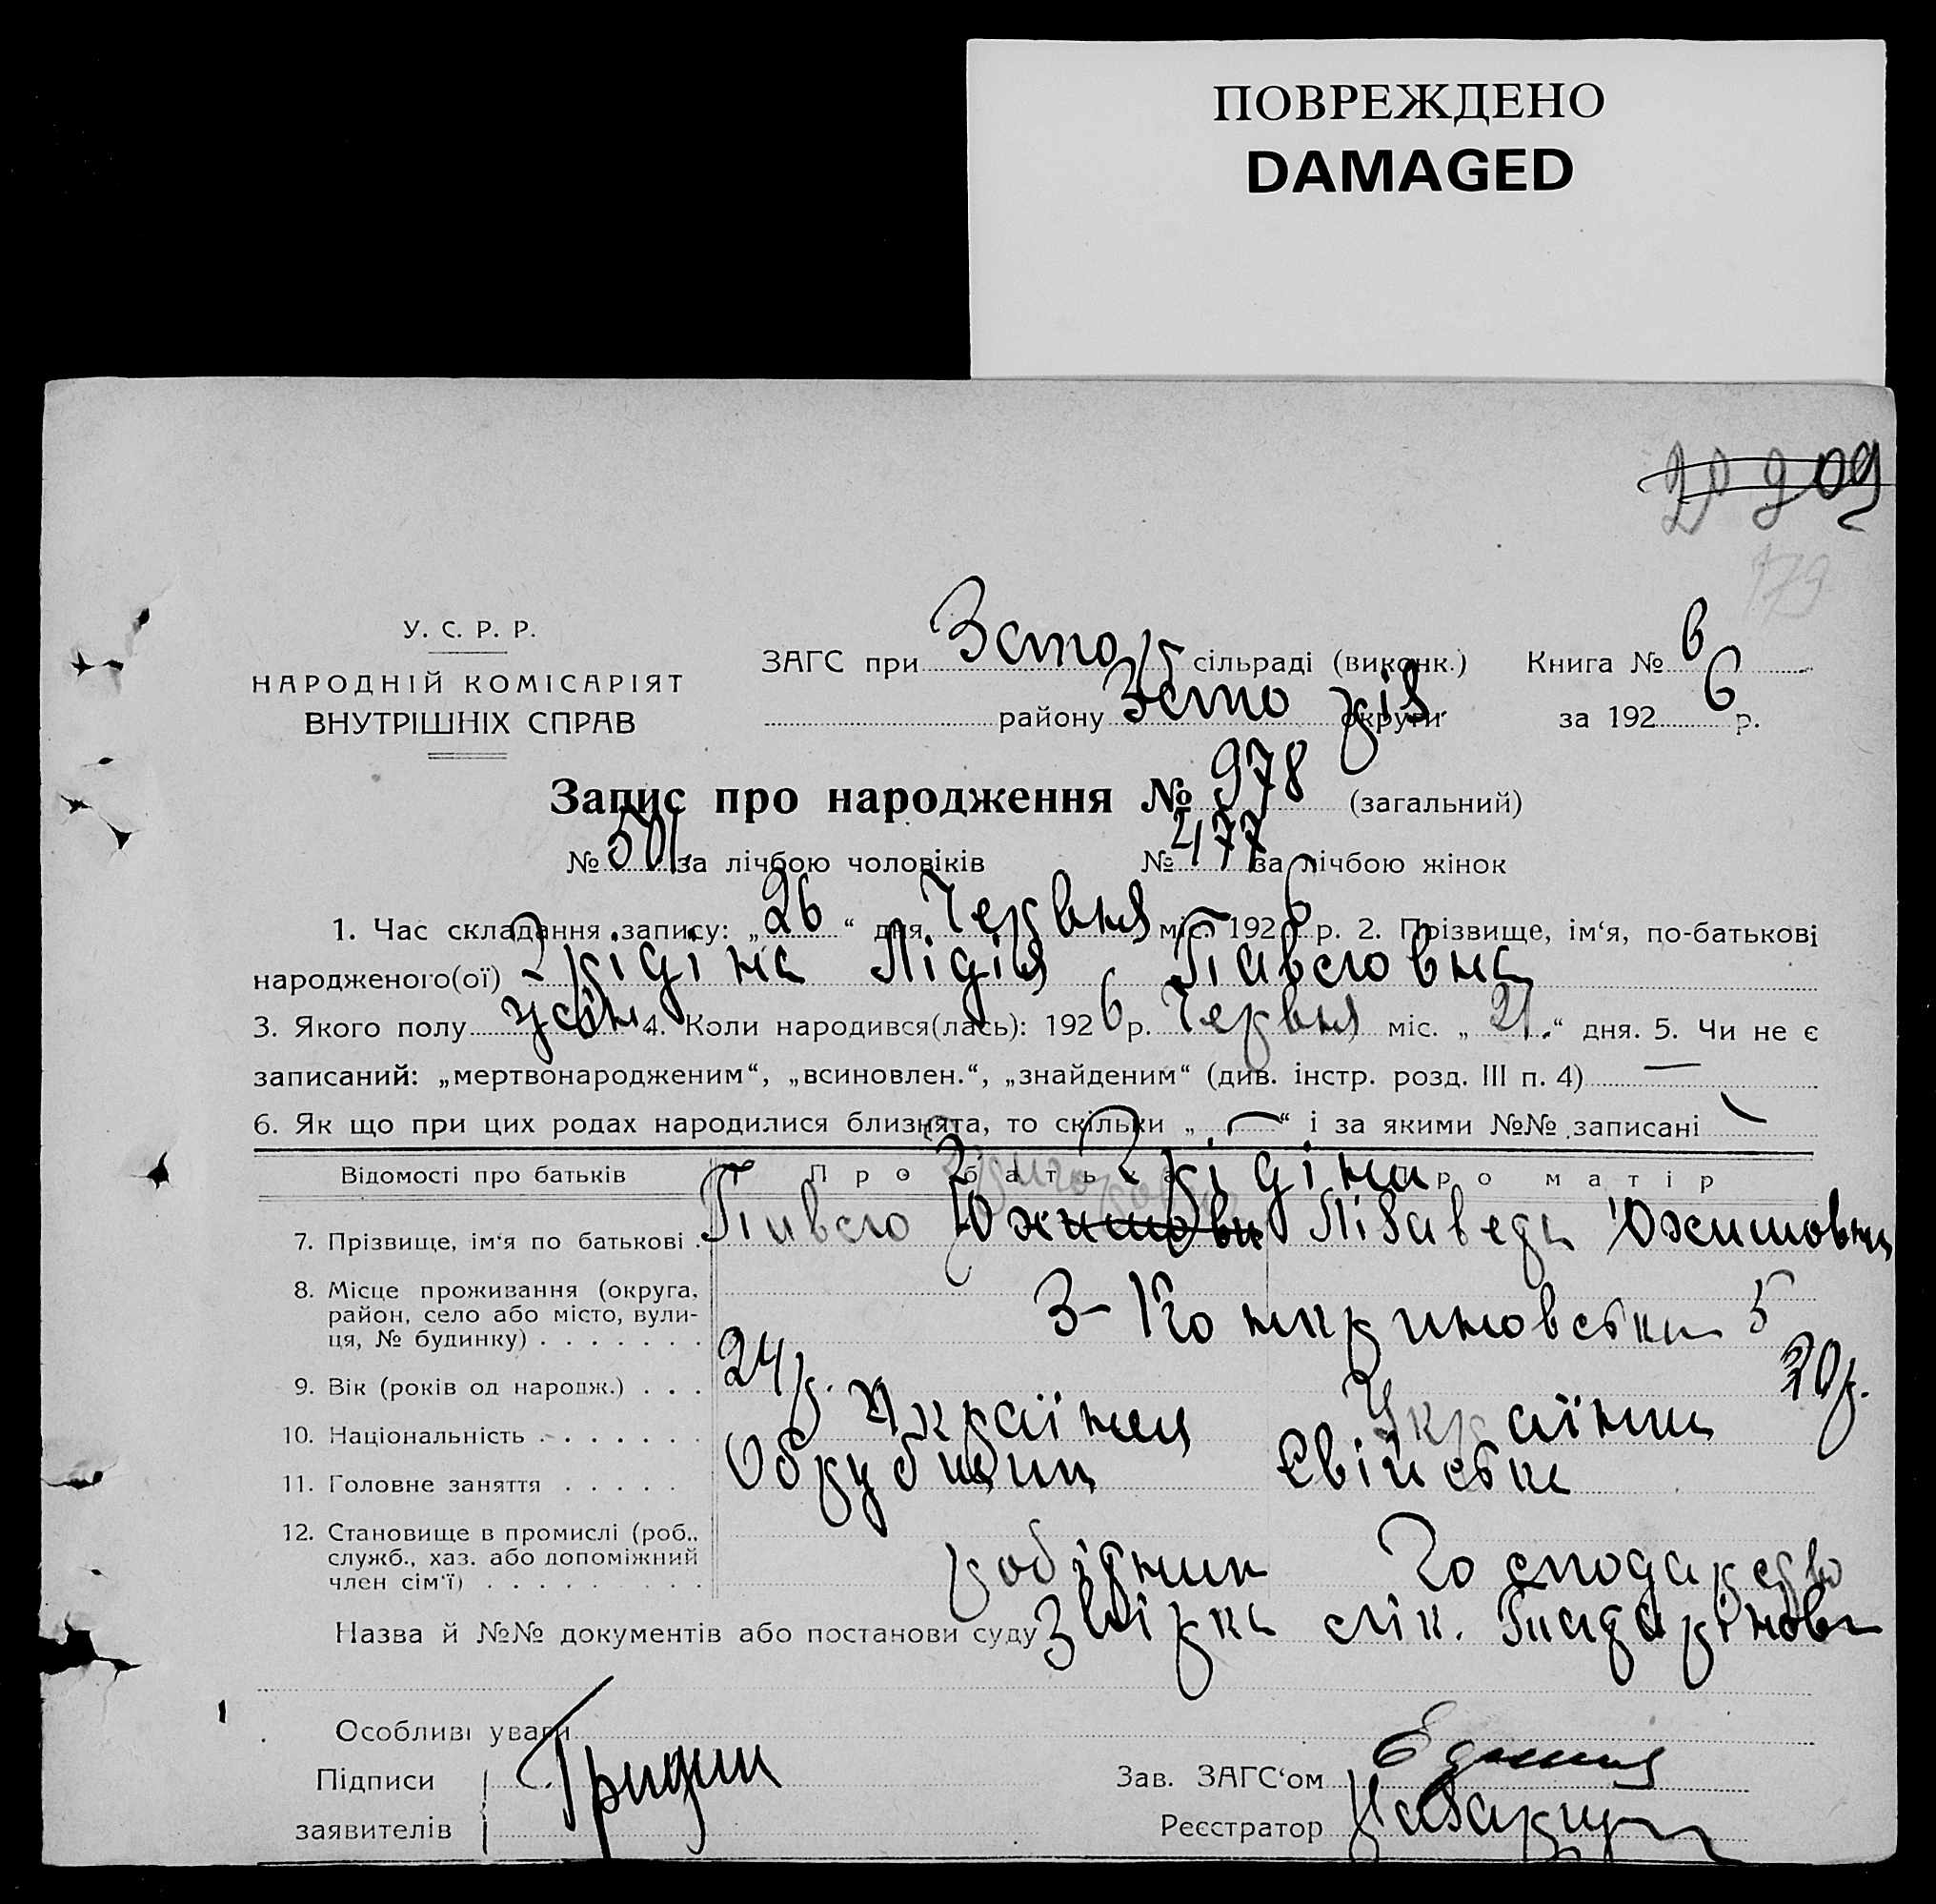 ПОВРЕЖДЕНО
DAMAGED
179
У. С. Р. Р.
НАРОДНІЙ КОМІСАРІЯТ
ВНУТРІШНІХ СПРАВ
ЗАГС при сільраді (виконк.) Книга № 6
району округи за 1926 р.
Запис про народження № 978 (загальний)
№ 501 за лічбою чоловіків № 477 за лічбою жінок
1. Час складання запису: „26“ дня Червня міс. 1926 р. 2. Прізвище, ім‘я, по-батькові
народженого(ої) Гридіна Лідія Павловна
3. Якого полу жін. 4. Коли народився(лась): 1926 р. Червня міс. „21.“ дня. 5. Чи не є
записаний: „мертвонародженим“, „всиновлен.“, „знайденим“ (див. інстр. розд. III п. 4) —
6. Як що при цих родах народилися близнята, то скільки „—“ і за якими №№ записані
Відомості про батьків Про батька Про матір
Гридіна
7. Прізвище, ім‘я по батькові Павло Лізаведа
8. Місце проживання (округа,
район, село або місто, вули-
ця, № будинку) 5
9. Вік (років од народж.) 24 р. 20 р.
10. Національність Українец Українка
11. Головне заняття Обрубщик Свійська
12. Становище в промислі (роб.,
служб., хаз. або допоміжний
член сім‘ї) робітник господарство
Назва й №№ документів або постанови суду лік.
Особливі уваги
Підписи
заявителів Гридин
Зав. ЗАГС‘ом
Реєстратор